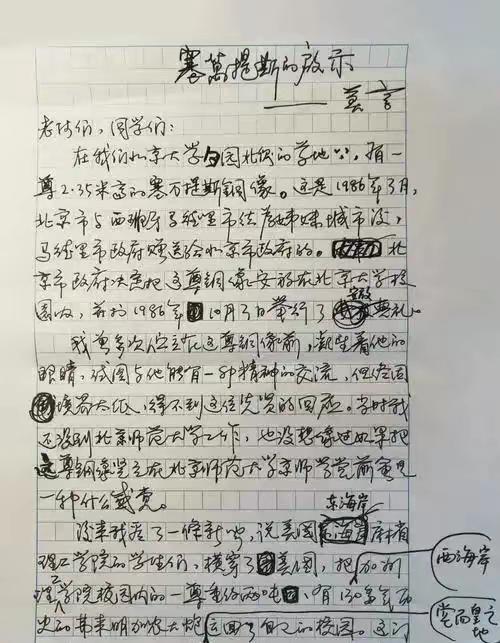 塞万提斯的启示
——莫言
老师们，同学们：
在我们北京大学园北侧的草地上，有一
尊2.35米高的塞万提斯铜像。这是1986年3月，
北京市与西班牙马德里市结为姊妹城市后，
马德里市政府赠送给北京市政府的。北
京市政府决定把这尊铜像安放在北京大学校
园内，并于1986年10月3日举行了安放典礼。
我曾多次伫立在这尊铜像前，盯着他的
眼睛，试图与他能有一种精神的交流，但
境界太低，得不到这位先贤的回应。当时我
还没到北京师范大学工作，也没想像过如果把
这尊铜像竖立在北京师范大学京师学堂前会是
一种什么感觉。
后来我看了一条新闻，说美国东海岸麻省
理工学院的学生们，横穿了美国，把加州
理工学院校园内的一尊重约两吨、有130多年历
史的弗莱明加农大炮运回了自己的校园。这门
西海岸
堂而皇之地